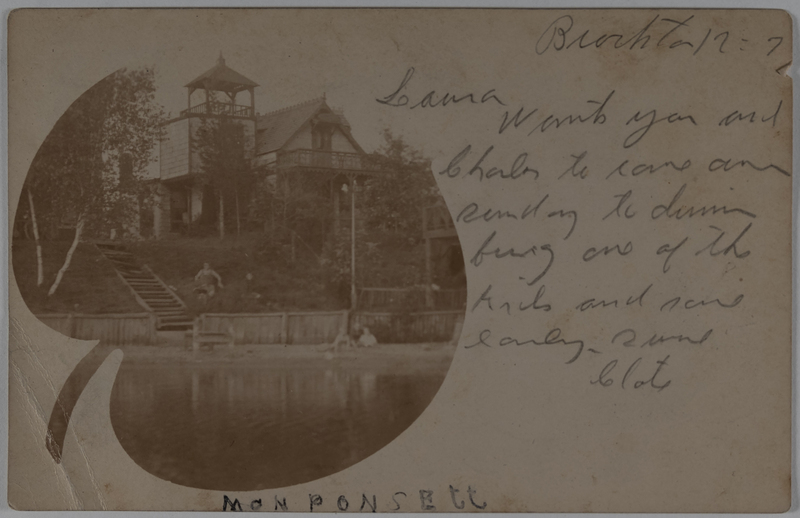 Brockton 12-7
Laura
Wants you and
Charles to come over
sunday to dinner
bring one of the
kids and come
early - sure
Clote
MONPONSETT